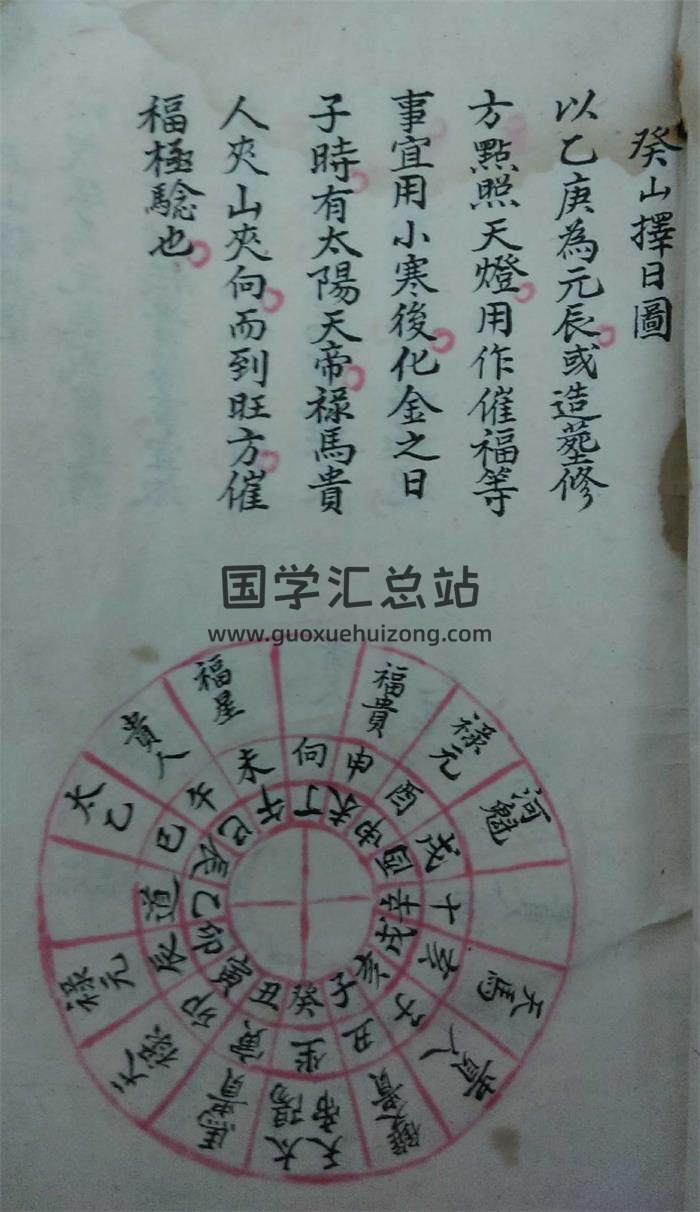 癸山擇日圖
以乙庚為元辰或造塟修
方點照天燈用作催福等
事宜用小寒後化金之日
子時有太陽天帝祿馬貴
人夾山夾向而到旺方催
福極騐也
国学汇总站
www.guoxuehuizong.com
福貴
祿元
河魁
天馬
貴人
太陽
天帝
馬貴
天祿
祿元
太乙
貴人
福星
向
申
酉
戌
十
亥
子
丑
坐
寅
卯
辰
道
巳
午
未
丁
未
申
酉
辛
戌
亥
子
癸
丑
寅
卯
乙
辰
巳
午